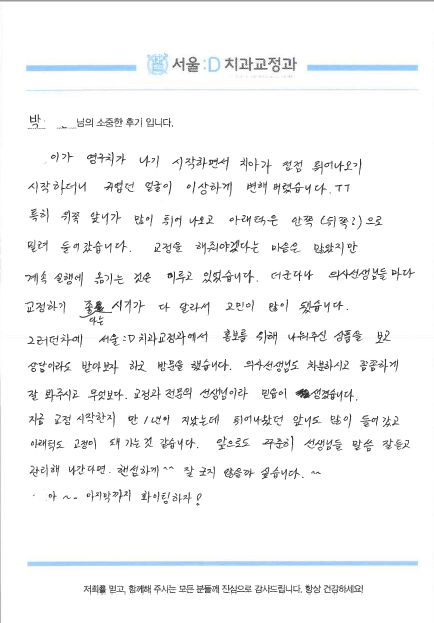 서울:D 치과교정과
박 님의 소중한 후기 입니다.
이가 영구치가 나기 시작하면서 치아가 점점 튀어나오기
시작하더니 귀엽던 얼굴이 이상하게 변해 버렸습니다. TT
특히 윗쪽 앞니가 많이 튀어 나오고 아래턱은 안쪽 (뒤쪽?)으로
밀려 들어갔습니다. 교정을 해줘야겠다는 마음은 많았지만
계속 실행에 옮기는 것은 미루고 있었습니다. 더군다나 의사선생님들마다
교정하기 좋다는 시기가 다 달라서 고민이 많이 됐습니다.
그러던차에 서울:D치과교정과에서 홍보를 위해 나눠주신 샘플을 보고
상담이라도 받아보자 하고 방문을 했습니다. 의사선생님도 차분하시고 꼼꼼하게
잘 봐주시고 무엇보다. 교정과 전문의 선생님이라 믿음이 생겼습니다.
지금 교정 시작한지 만 1년이 지났는데 튀어나왔던 앞니도 많이 들어갔고
아래턱도 교정이 돼 가는것 같습니다. 앞으로도 꾸준히 선생님들 말씀 잘듣고
관리해 나간다면. 핸섬하게^^ 잘 크지 않을까 싶습니다. ^^
아~~ 마지막까지 화이팅하자!
저희를 믿고, 함께해 주시는 모든 분들께 진심으로 감사드립니다. 항상 건강하세요!